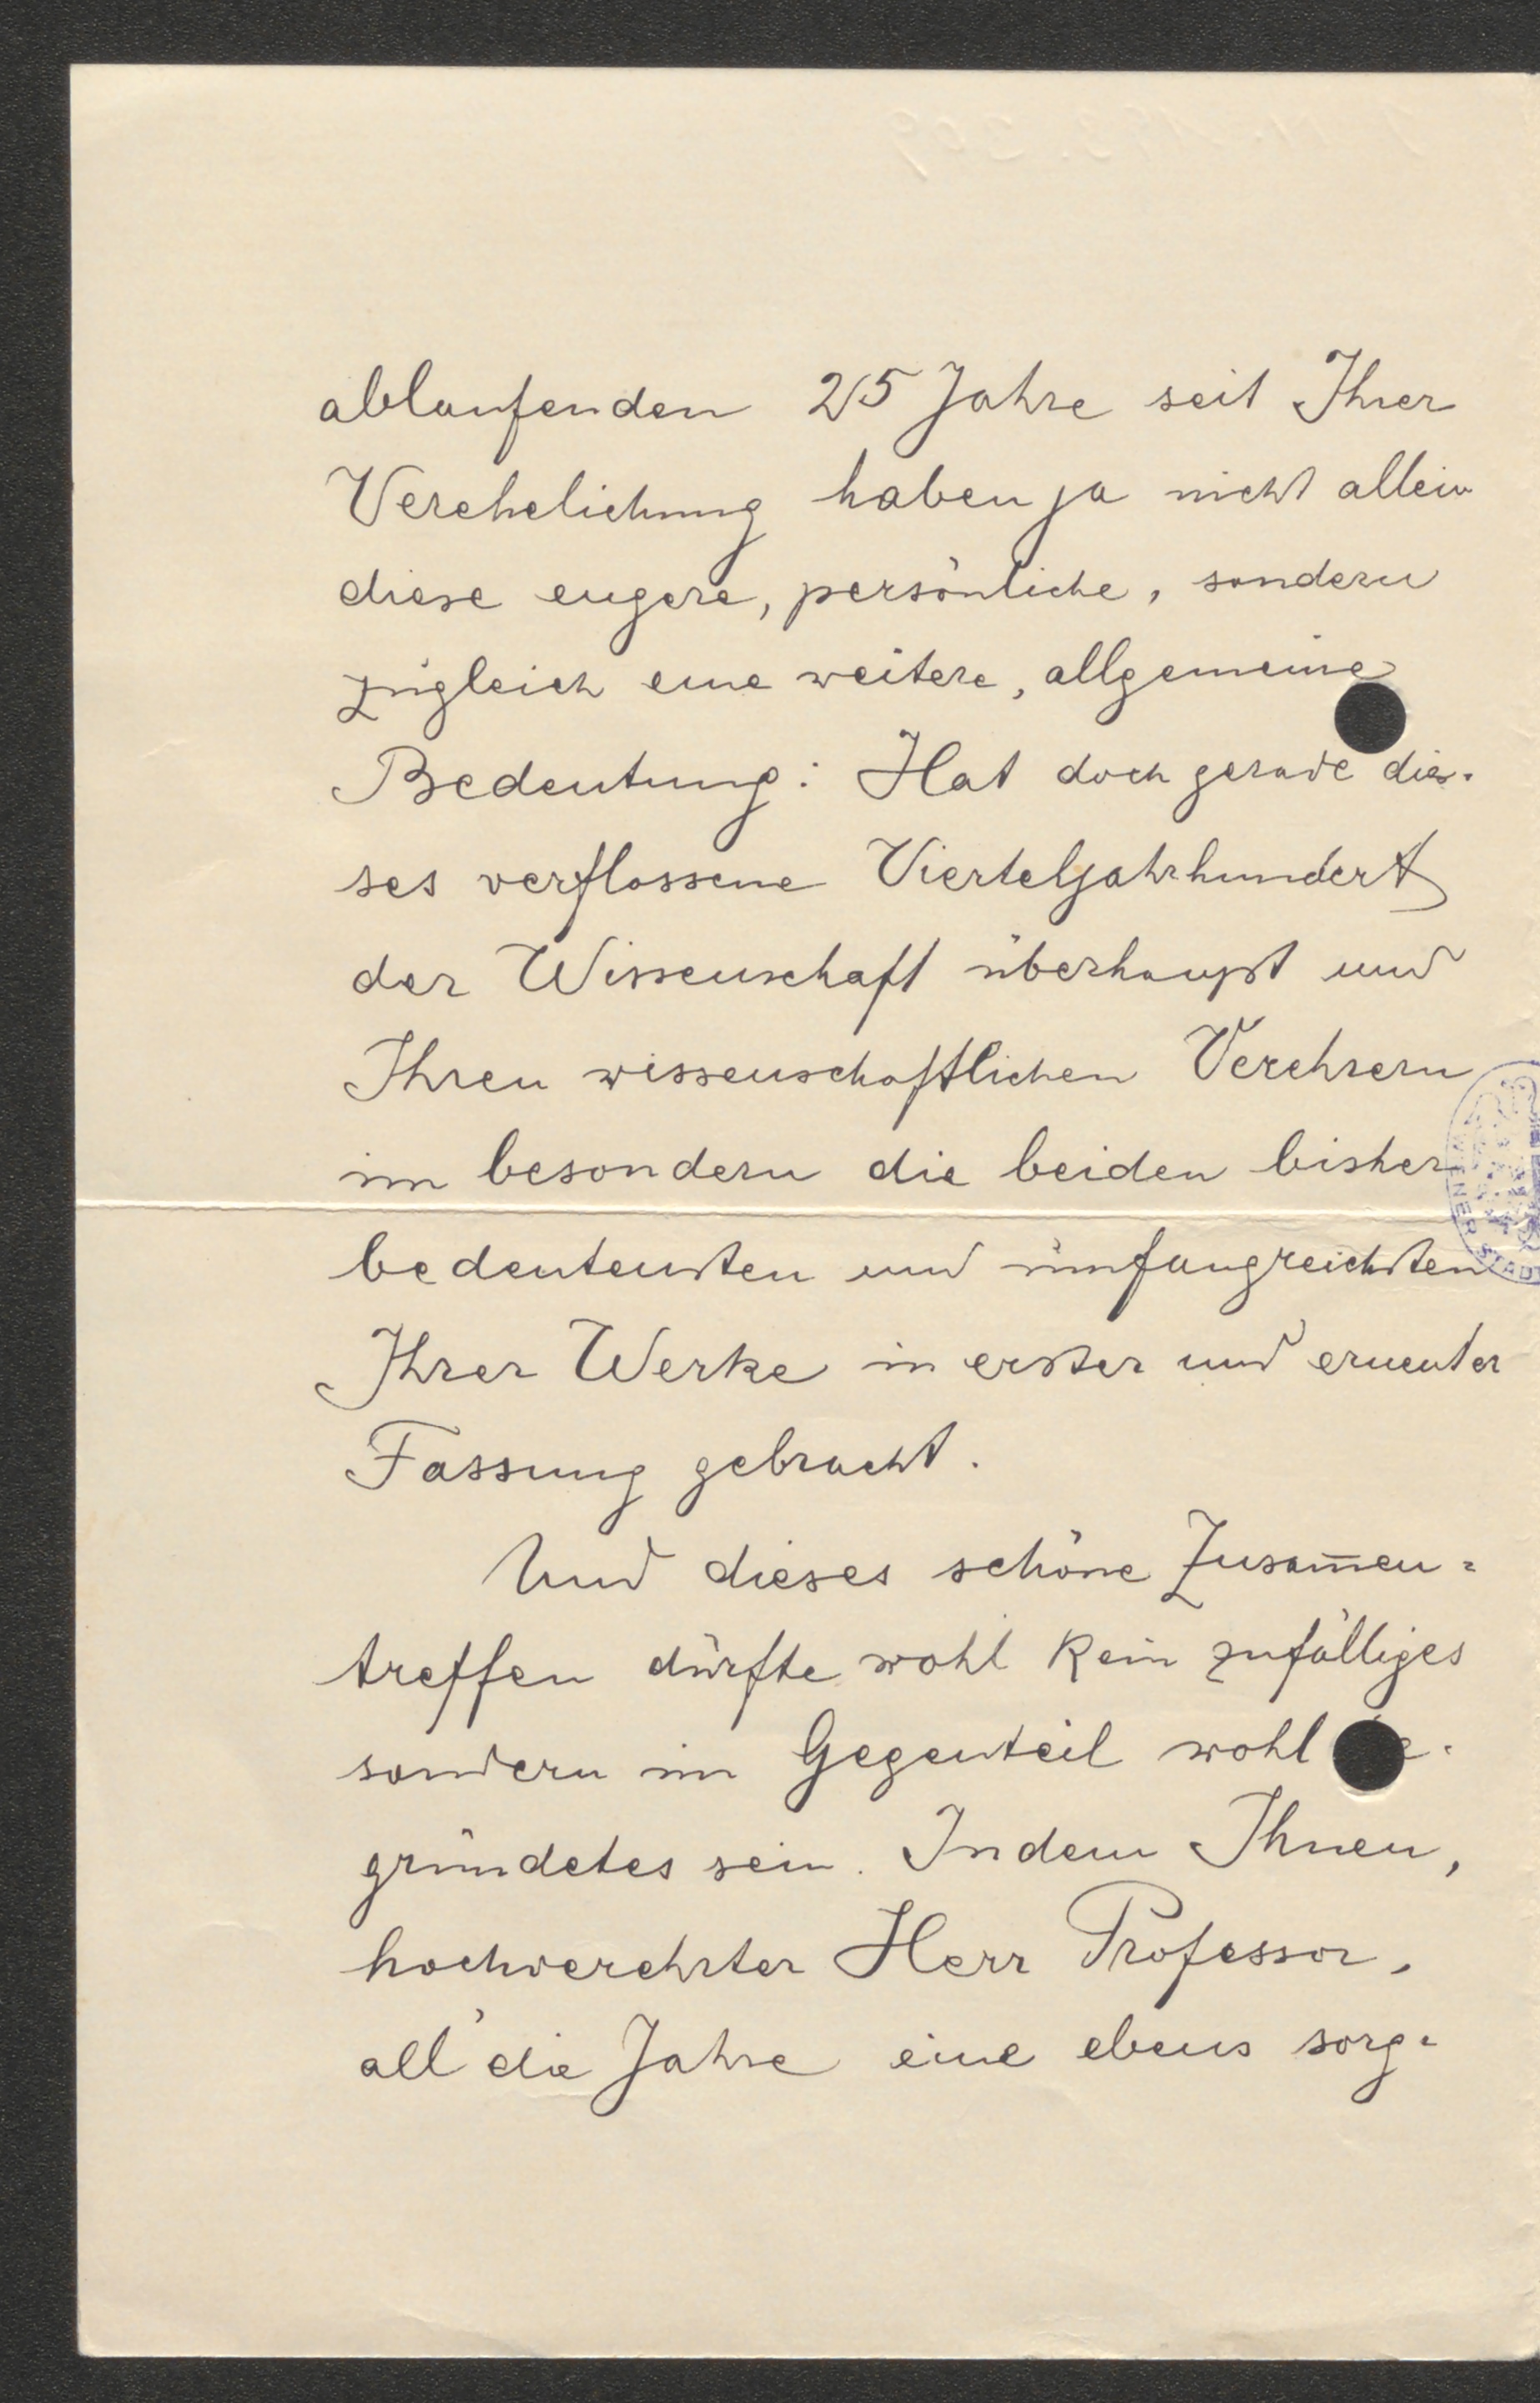 ablaufenden 25 Jahre seit Ihrer
Verehelichung haben ja nicht allein
diese engere, persönliche, sondern
zugleich eine weitere, allgemeine
Bedeutung: Hat doch gerade die-
ses verflossene Vierteljahrhundert
der Wissenschaft überhaupt und
Ihren wissenschaftlichen Verehrern
im besondern die beiden bisher
bedeutensten und umfangreichsten
Ihrer Werke in erster und erneuter
Fassung gebracht.
Und dieses schöne Zusam̅en=
treffen dürfte wohl kein zufälliges
sondern im Gegenteil wohl
gründetes sein. Indem Ihnen,
hochverehrter Herr Professor,
all' die Jahre eine ebens sorg-